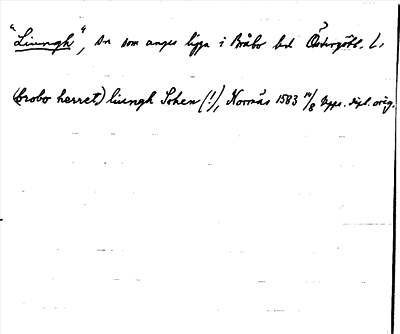 "Liungh", sn som anges ligga i Bråbo hd Östergötl. l.
(brobo herret) liungh Sohen (!), Kornäs 1583 14/8 Upps. dipl. orig.